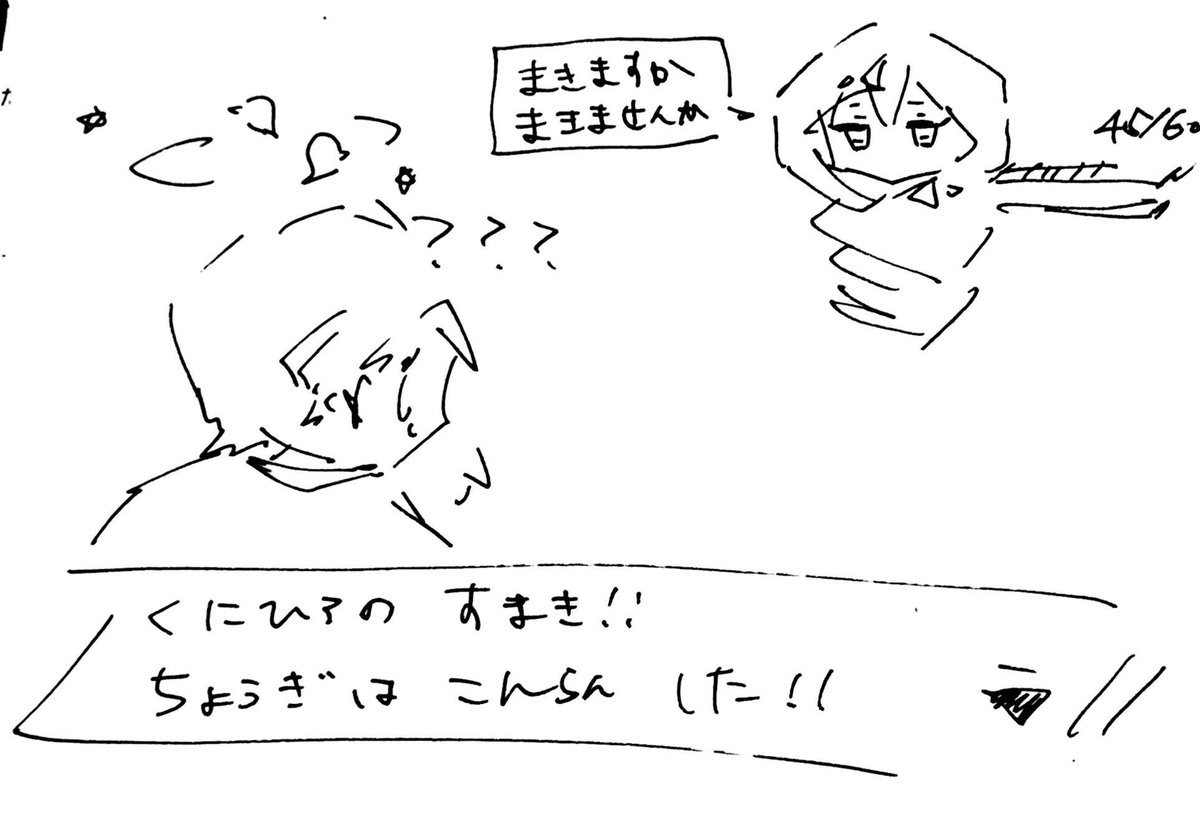 まきますか
まきませんか
45/60
???
くにひろの すまき!!
ちょうぎは こんらん した!!